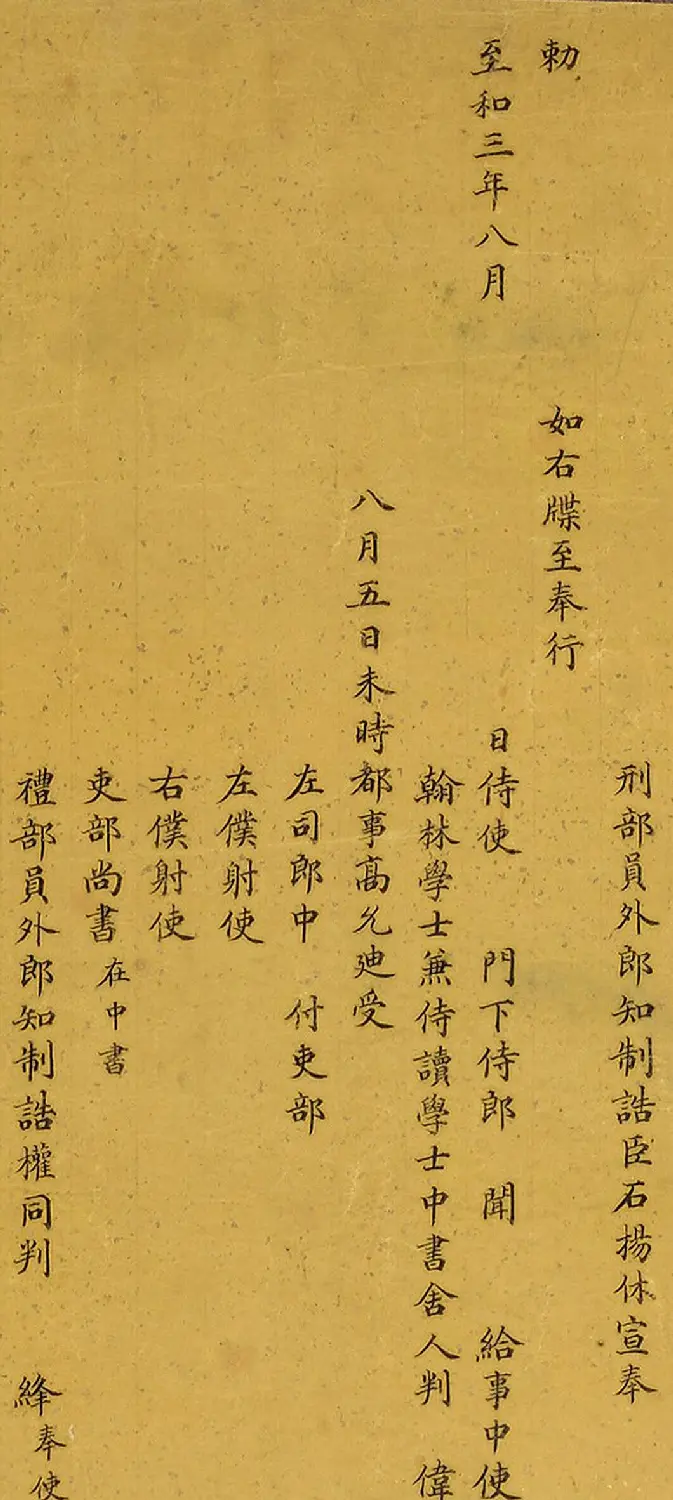 刑部員外郎知制誥臣石揚休宣奉
勅
如右牒至奉行
至和三年八月
日侍使 門下侍郎 聞 給事中使
翰林學士兼侍讀學士中書舍人判 偉
八月五日未時都事髙允廸受
左司郎中 付吏部
左僕射使
右僕射使
吏部尚書在中書
禮部員外郎知制誥權同判 絳奉使